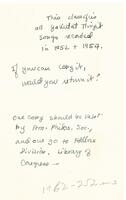 This classifies
all Yakutat Tlingit
songs recorded
in 1952 + 1954.
If you can copy it,
would you return it?
One copy should be kept
by Amer. Philos. Soc.,
and one go to Folklore
Division, Library of
Congress —